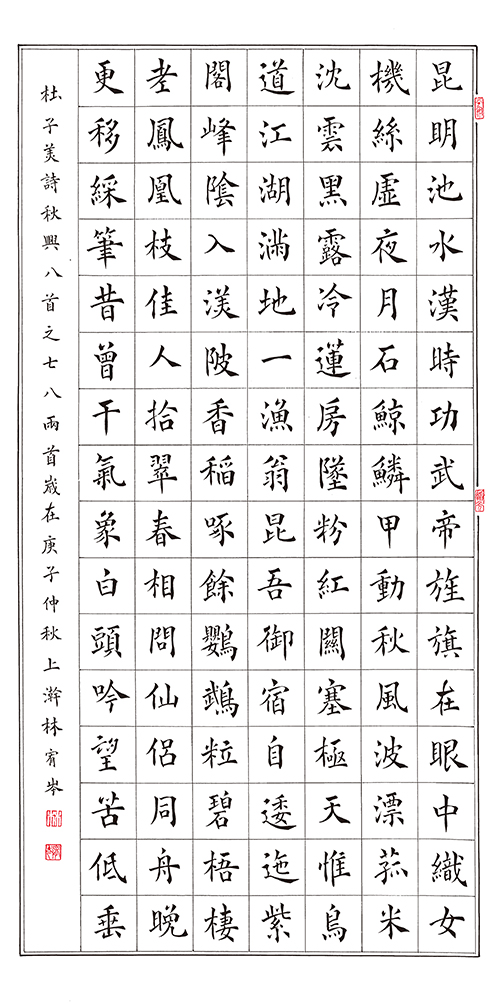 昆明池水漢時功武帝旌旗在眼中織女
機絲虛夜月石鯨鱗甲動秋風波漂菰米
沈雲黑露冷蓮房墜粉紅關塞極天惟鳥
道江湖滿地一漁翁昆吾御宿自逶迤紫
閣峰陰入渼陂香稻啄餘鸚鵡粒碧梧棲
老鳳凰枝佳人拾翠春相問仙侶同舟晚
更移綵筆昔曾干氣象白頭吟望苦低垂
杜子美詩秋興八首之七八兩首歲在庚子仲秋上澣林宥岑